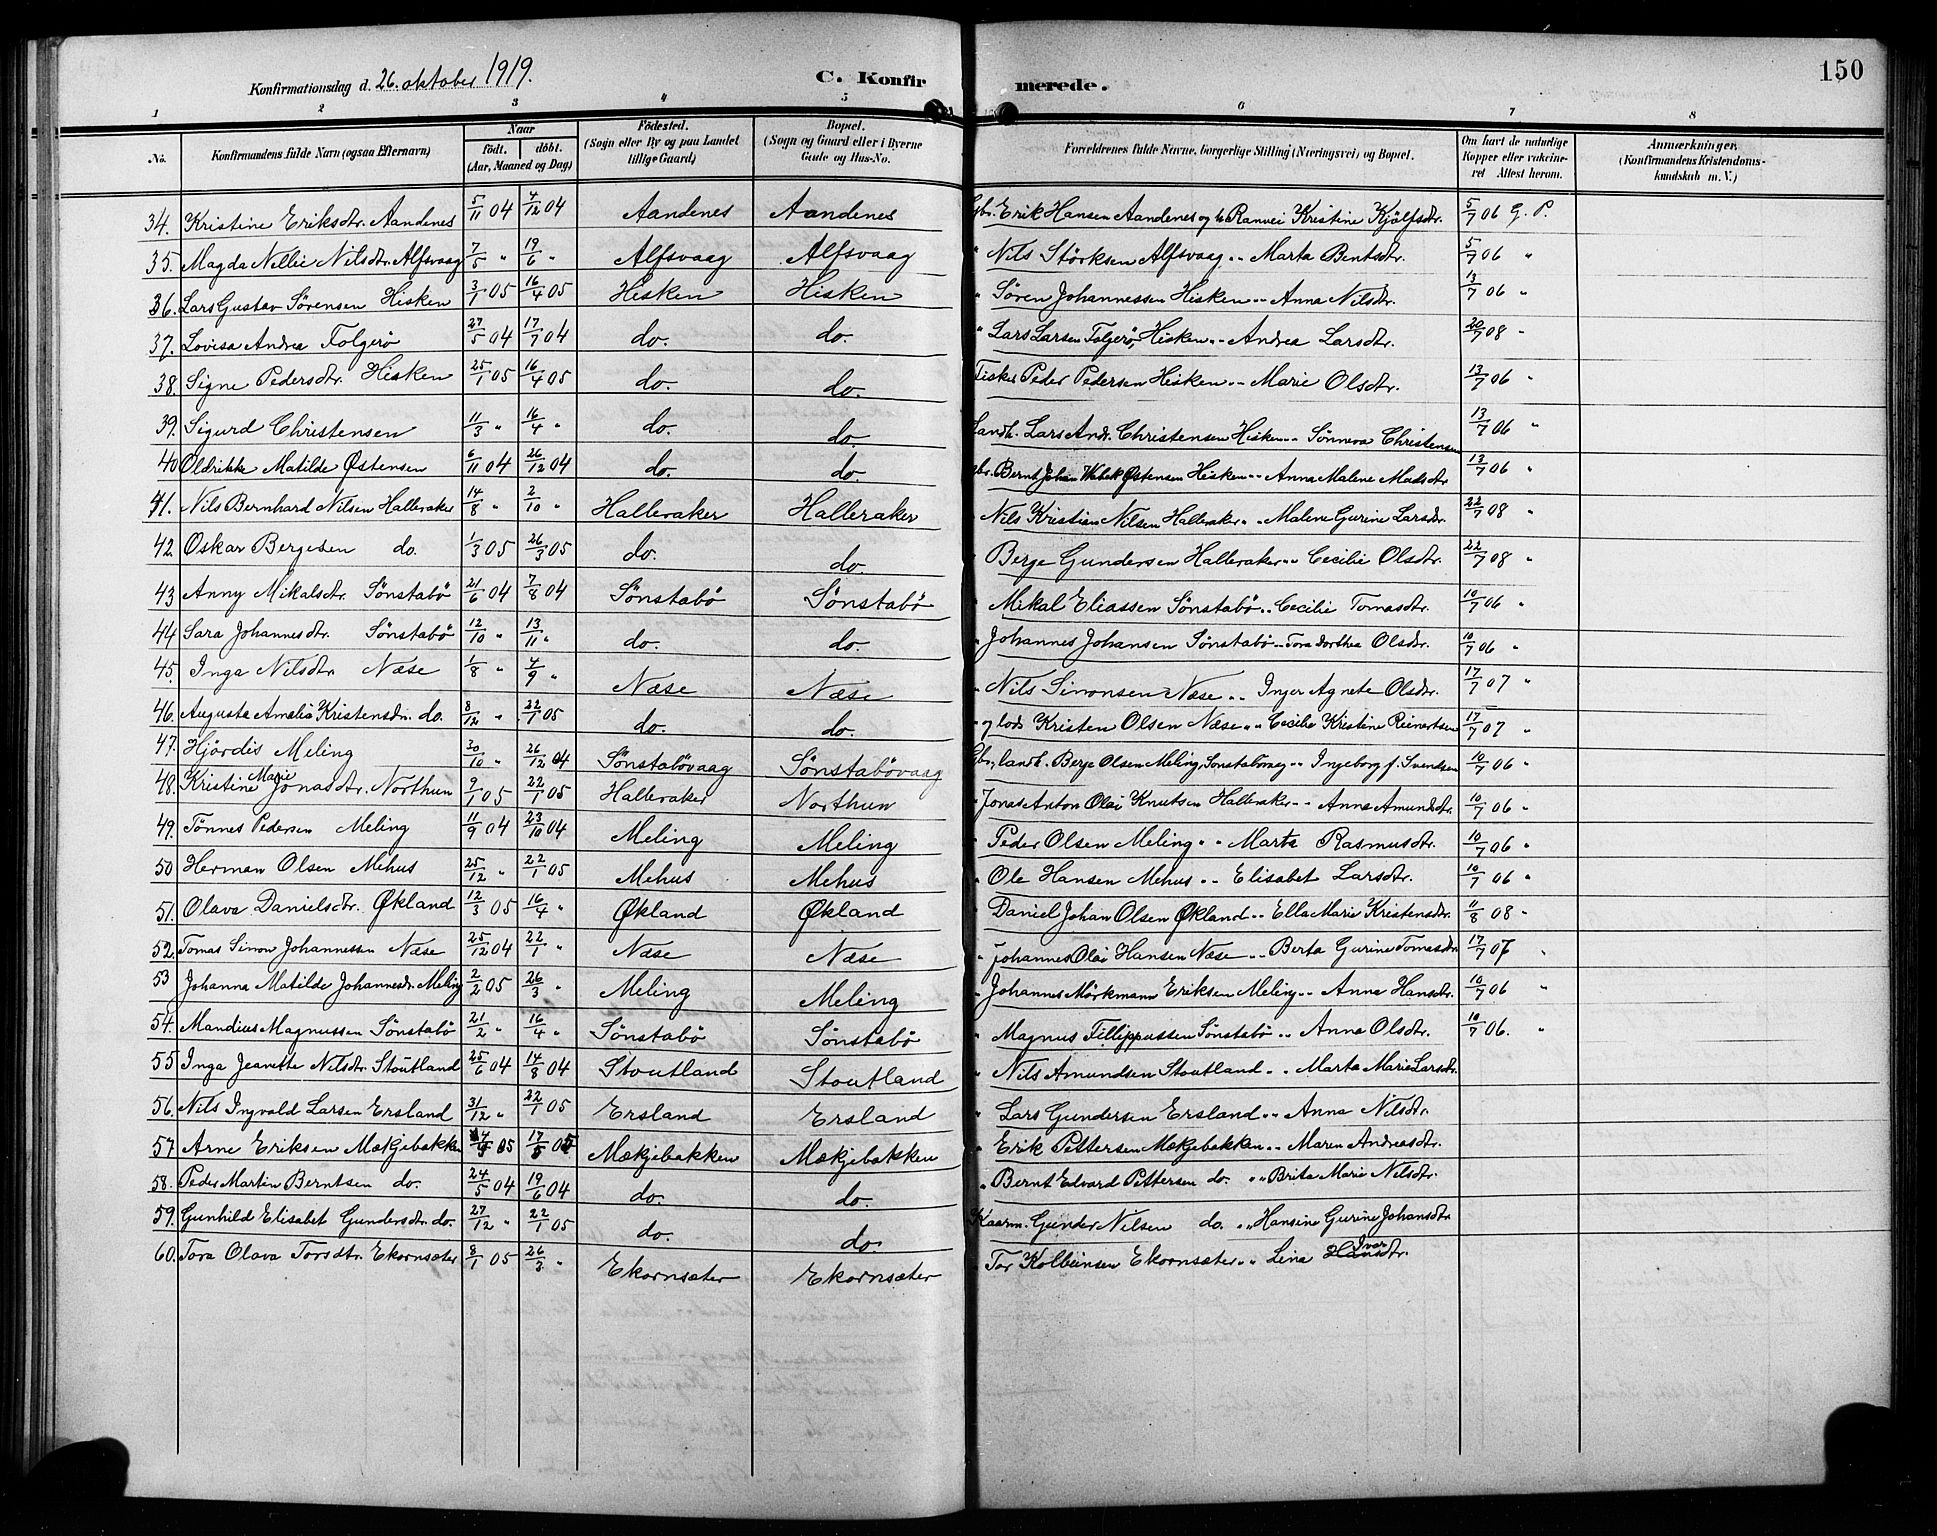 150
Konfirmationsdag d. 26. oktober 1919. C. Konfirmerede.
1 2 3 4 5 6 7 8
No. Konfirmandens fulde Navn (ogsaa Efternavn) Naar födt. döbt. (Aar, Maaned og Dag) Födested. (Sogn eller By og paa Landet tillige Gaard) Bopæl. (Sogn og Gaard eller i Byerne Gade og Hus-No. Forældrenes fulde Navne, borgerlige Stilling (Næringsvei) og Bopæl. Om havt de naturlige Kopper eller vakcineret Attest herom. Anmærkninger. (Konfirmandens Kristendomskundskab m. V.)
34. Kristine Eriksdtr. Aandenes 5/11 04 4/12 04 Aandenes Aandenes Gbr. Erik Hansen Aandenes og h. Ranvei Kristine Kjölfsdtr. 5/7 06 G. P.
35. Magda Nellie Nilsdtr. Alfsvaag 7/5 " 19/6 " Alfsvaag Alfsvaag " Nils Störksen Alfsvaag " " Marta Bentsdtr. 5/7 06 "
36. Lars Gustav Sörensen Hisken 3/1 05 16/4 05 Hisken Hisken " Sören Johannessen Hisken " " Anna Nilsdtr. 13/7 06 "
37. Lovisa Andrea Folgerö 27/5 04 17/7 04 do. do. " Lars Larsen Folgerö, Hisken " " Andrea Larsdtr. 20/7 08 "
38. Signe Pedersdtr. Hisken 25/1 05 16/4 05 do. do. Fisker Peder Pedersen Hisken " " Marie Olsdtr. 13/7 06 "
39. Sigurd Christensen 11/3 " 16/4 " do. do. Landh. Lars Andr. Christensen Hisken " " Sönneva Christensen 13/7 06 "
40 Oldrikke Matilde Østensen 6/11 04 26/12 04 do. do. Gbr. Bernt Johan Østensen Hisken " " Anna Malene Madsdtr 13/7 06 "
41. Nils Bernhard Nilsen Halleraker 14/8 " 2/10 " Halleraker Halleraker " Nils Kristian Nilsen Halleraker " " Malene Gurine Larsdtr 22/7 08 "
42. Oskar Bergesen do. 1/3 05 26/3 05 do. do. " Berge Gundersen Halleraker " " Cecilie Olsdtr. 22/7 08 "
43 Anny Mikalsdtr. Sönstabö 21/6 04 7/8 04 Sönstabö Sönstabö " Mikal Eliassen Sönstabö " " Cecilie Tomasdtr. 10/7 06 "
44 Sara Johannesdtr. Sönstabö 12/10 " 13/11 " do. do. " Johannes Johansen Sönstabö " " Tora Dorthea Olsdtr. 10/7 06 "
45. Inga Nilsdtr. Næse 1/8 " 4/9 " Næse Næse " Nils Simonsen Næse " " Inger Agnete Olsdtr. 17/7 07 "
46. Augusta Amalia Kristensdtr. do. 8/12 " 22/1 05 do. do. " og lods Kristen Olsen Næse " " Cecilie Kristine Reinertsen 17/7 07 "
47. Hjördis Meling 30/10 " 26/12 04 Sönstabövaag Sönstabövaag Gbr., landh. Berge Olsen Meling, Sönstabövaag " " Ingeborg f. Svendsen 10/7 06 "
48. Kristine Marie Jonasdtr. Northun 9/1 05 22/1 05 Halleraker Northun " Jonas Anton Olai Knutsen Halleraker " " Anna Amundsdtr. 10/7 06 "
49. Tönnes Pedersen Meling 11/9 04 23/10 04 Meling Meling " Peder Olsen Meling " " Marta Rasmusdtr. 10/7 06 "
50 Herman Olsen Mehus 25/12 " 22/1 05 Mehus Mehus " Ole Hansen Mehus " " Elisabet Larsdtr. 10/7 06 "
51. Olava Danielsdtr. Økland 12/3 05 16/4 " Økland Økland " Daniel Johan Olsen Økland " " Ella Marie Kristensdtr. 11/8 08 "
52. Tomas Simon Johannessen Næse 25/12 04 22/1 " Næse Næse " Johannes Olai Hansen Næse " " Berta Gurine Tomasdtr. 17/7 07 "
53 Johanna Matilde Johannesdtr. Meling 2/2 05 26/3 " Meling Meling " Johannes Mörkmann Eriksen Meling " " Anna Hansdtr. 10/7 06 "
54. Mandius Magnussen Sönstabö 21/2 " 16/4 " Sönstabö Sönstabö " Magnus Fillippussen Sönstabö " " Anna Olsdtr. 10/7 06. "
55 Inga Jeanette Nilsdtr. Stoutland 25/6 04 14/8 04 Stoutland Stoutland " Nils Amundsen Stoutland " " Marta Marie Larsdtr.
56. Nils Ingvald Larsen Ersland 31/12 " 22/1 05 Ersland Ersland " Lars Gundersen Ersland " " Anna Nilsdtr.
57. Arne Eriksen Mækjebakken 05 17/5 05 Mækjebakken Mækjebakken " Erik Pettersen Mækjebakken " " Maren Andreasdtr.
58. Peder Martin Berntsen do. 24/5 04 19/6 04 do. do. " Bernt Edvard Pettersen do. " " Brita Marie Nilsdtr.
59. Gunhild Elisabet Gundersdtr. do. 27/12 " 22/1 05 do. do. Kaarm. Gunder Nilsen do. " " Hansine Gurine Johansdtr.
60. Tora Olava Torsdtr. Ekornsæter 8/1 05 26/3 " Ekornsæter Ekornsæter " Tor Kolbeinsen Ekornsæter " " Lina Ivarsdtr.